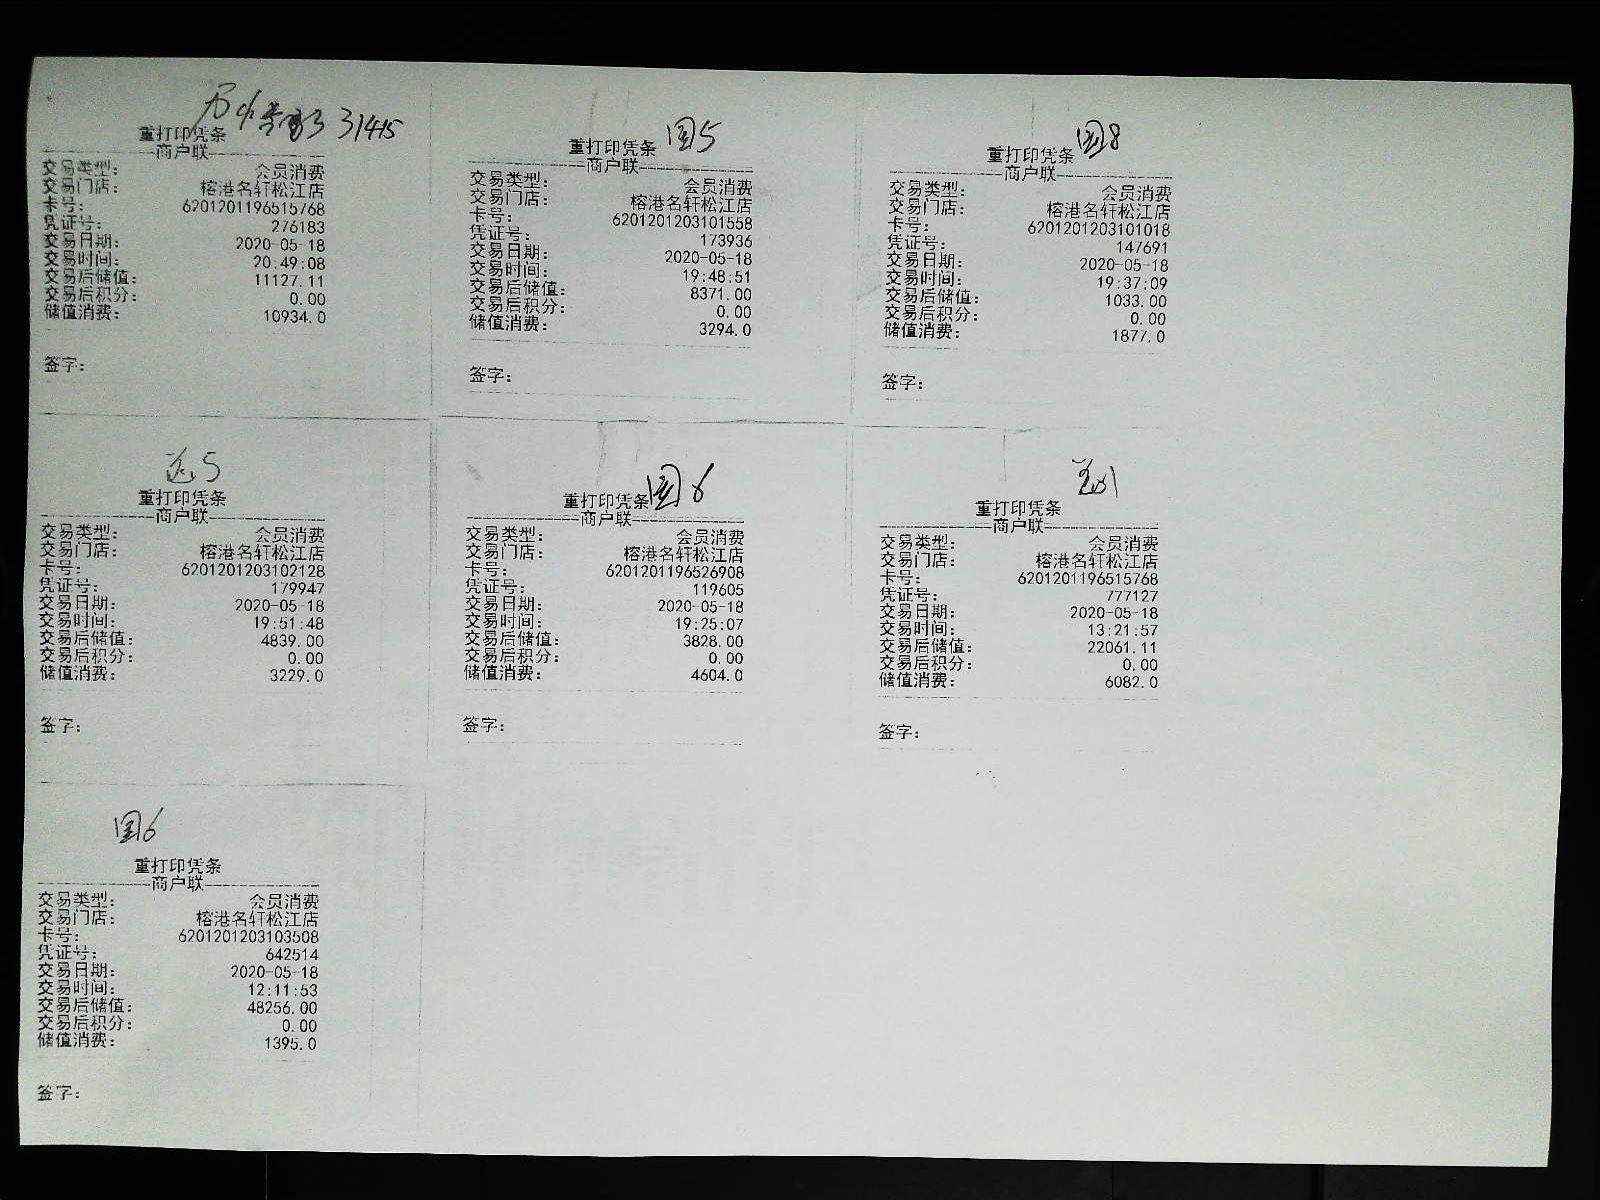 31415
重打印凭条
商户联
交易类型: 会员消费
交易门店: 榕港名轩松江店
卡号: 6201201196515768
凭证号: 276183
交易日期: 2020-05-18
交易时间: 20:49:08
交易后储值: 11127.11
交易后积分: 0.00
储值消费: 10934.0
签字:
国5
重打印凭条
商户联
交易类型: 会员消费
交易门店: 榕港名轩松江店
卡号: 6201201203101558
凭证号: 173936
交易日期: 2020-05-18
交易时间: 19:48:51
交易后储值: 8371.00
交易后积分: 0.00
储值消费: 3294.0
签字:
国8
重打印凭条
商户联
交易类型: 会员消费
交易门店: 榕港名轩松江店
卡号: 6201201203101018
凭证号: 147691
交易日期: 2020-05-18
交易时间: 19:37:09
交易后储值: 1033.00
交易后积分: 0.00
储值消费: 1877.0
签字:
5
重打印凭条
商户联
交易类型: 会员消费
交易门店: 榕港名轩松江店
卡号: 6201201203102128
凭证号: 179947
交易日期: 2020-05-18
交易时间: 19:51:48
交易后储值: 4839.00
交易后积分: 0.00
储值消费: 3229.0
签字:
国6
重打印凭条
商户联
交易类型: 会员消费
交易门店: 榕港名轩松江店
卡号: 6201201196526908
凭证号: 119605
交易日期: 2020-05-18
交易时间: 19:25:07
交易后储值: 3828.00
交易后积分: 0.00
储值消费: 4604.0
签字:
重打印凭条
商户联
交易类型: 会员消费
交易门店: 榕港名轩松江店
卡号: 6201201196515768
凭证号: 777127
交易日期: 2020-05-18
交易时间: 13:21:57
交易后储值: 22061.11
交易后积分: 0.00
储值消费: 6082.0
签字:
国6
重打印凭条
商户联
交易类型: 会员消费
交易门店: 榕港名轩松江店
卡号: 6201201203103508
凭证号: 642514
交易日期: 2020-05-18
交易时间: 12:11:53
交易后储值: 48256.00
交易后积分: 0.00
储值消费: 1395.0
签字: